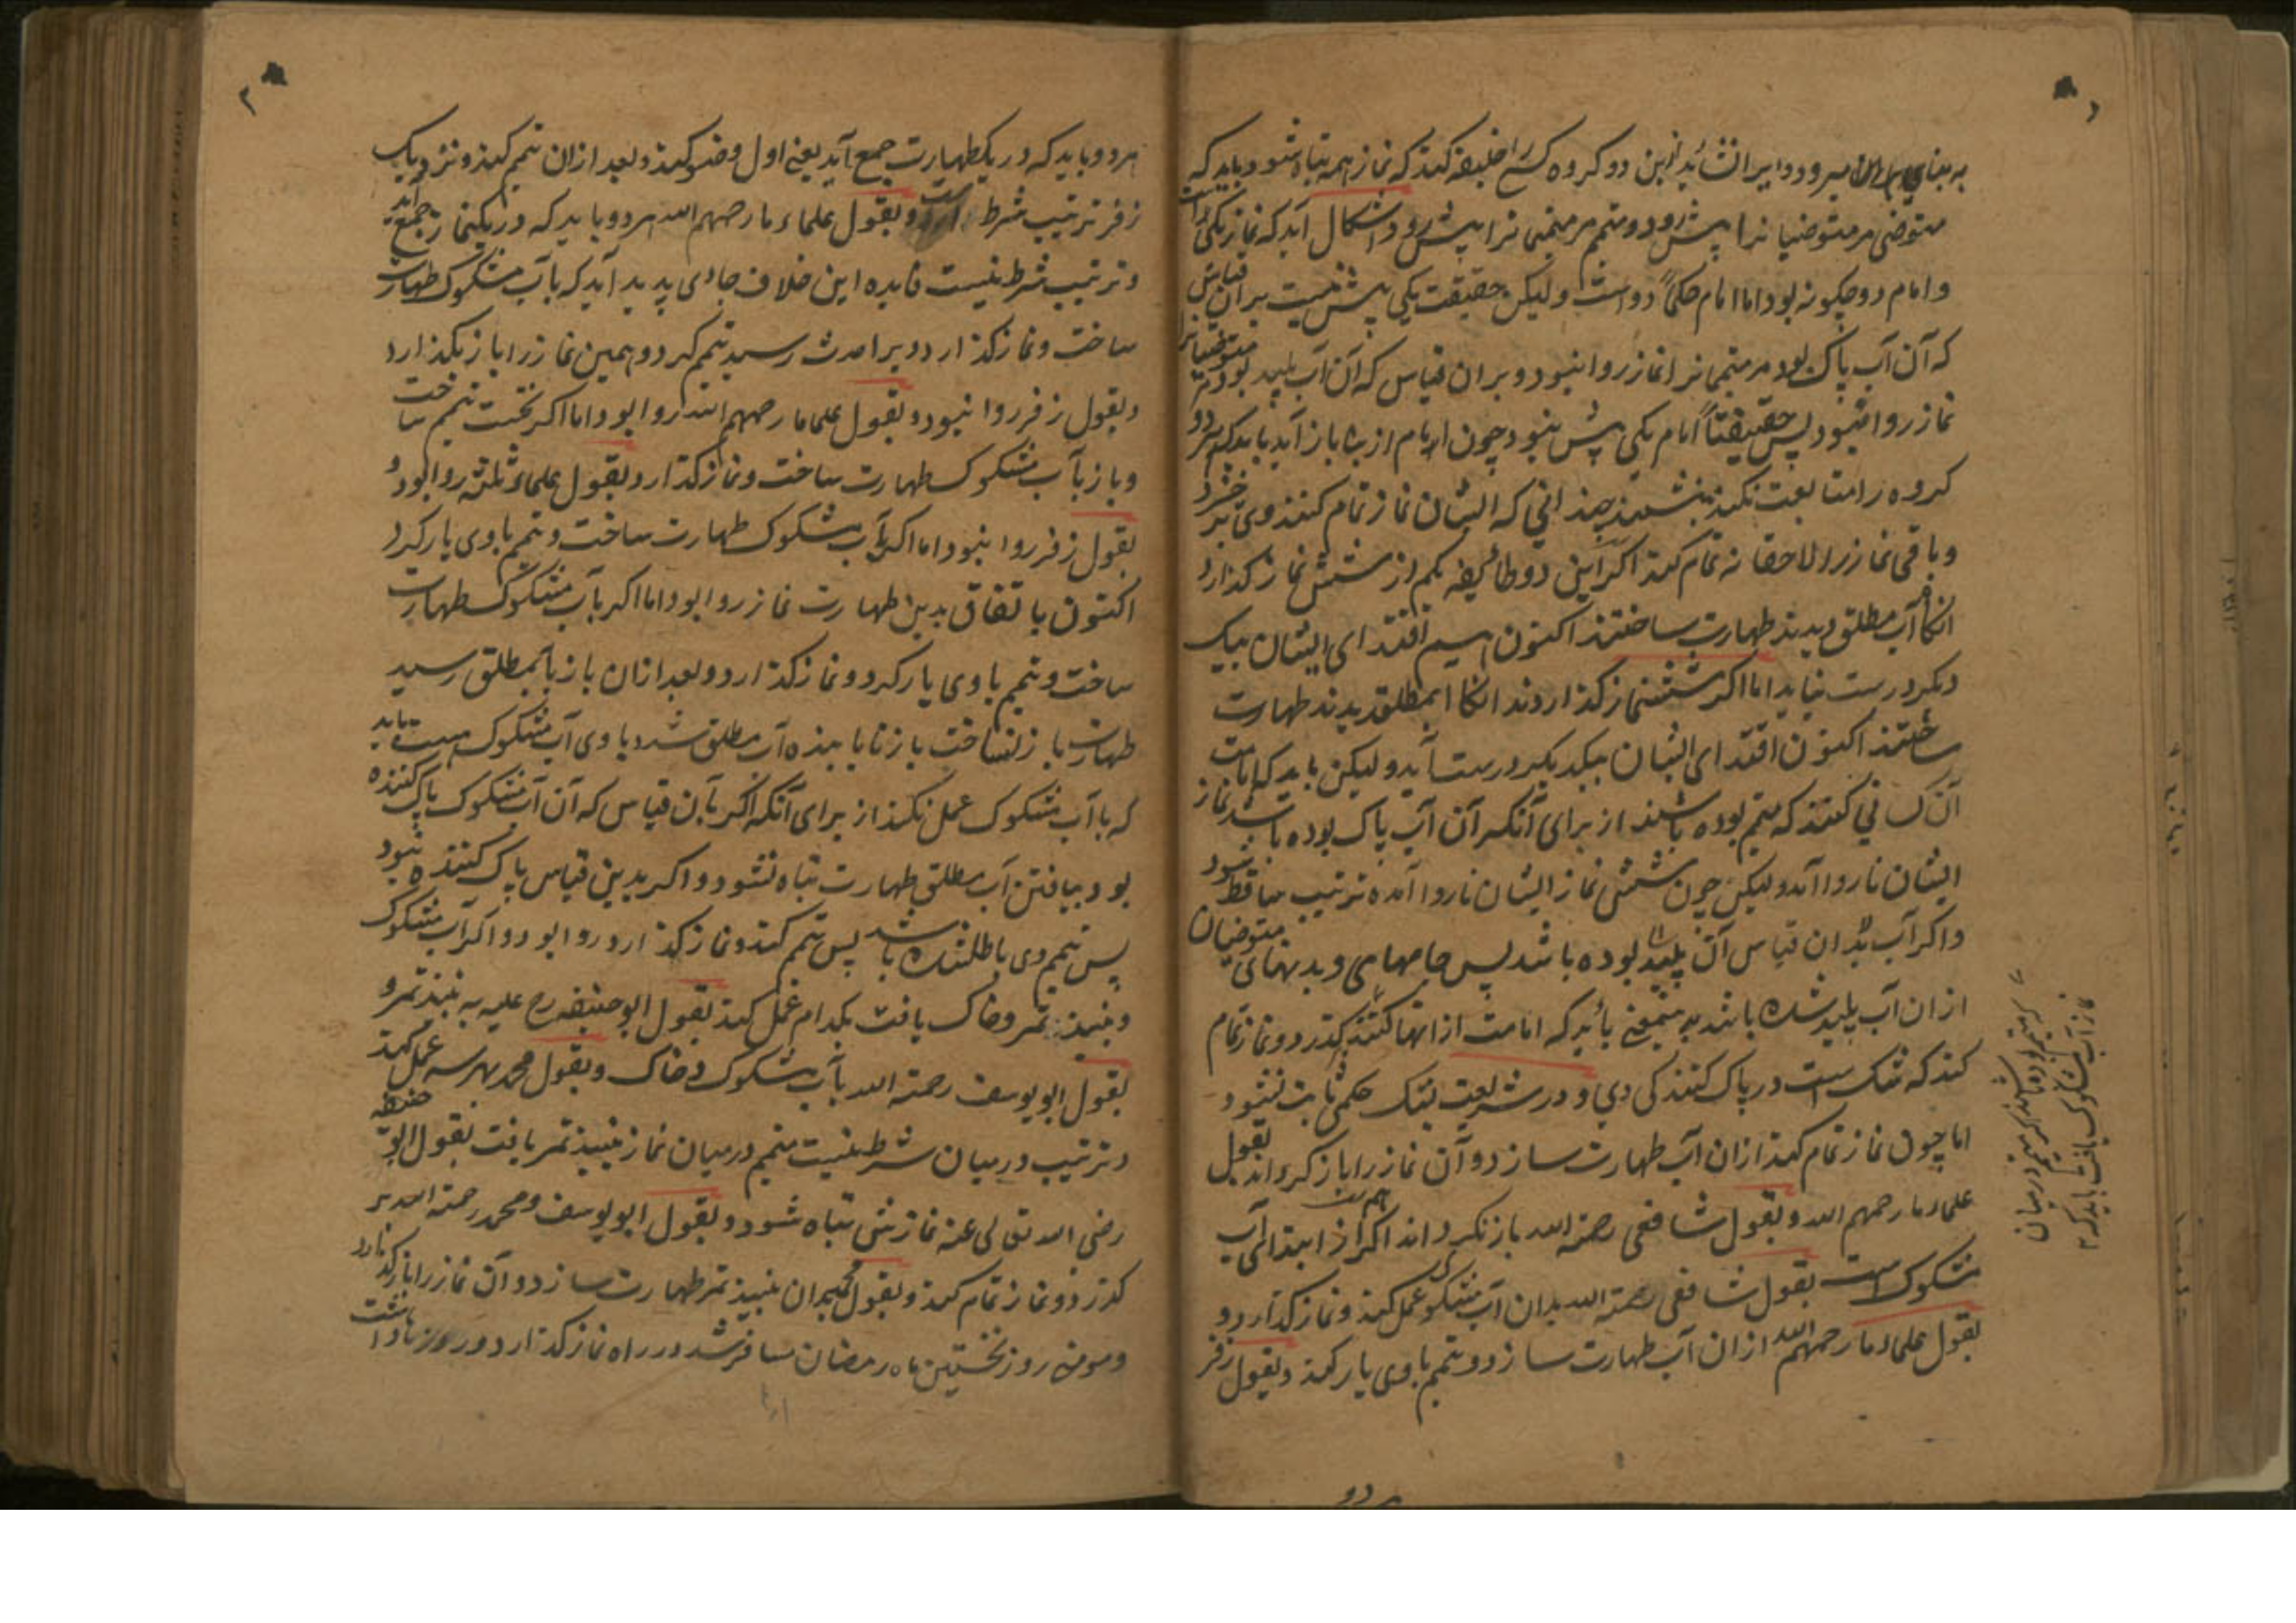 به بنای میرود و ایرا نشاید ازین دو کروه کسی را خلیفه کند که نماز همه تباه شود و باید که
متوضی مر متوضیانرا پیش رود و متیمم مر متیممانرا پیش رود اشکال آید که نماز یکی است
و امام دو چکونه بود اما امام حکماً دو است و لیکن حقیقت یکی پیش نیست بر آن قیاس
که آن آب پاک بود مر متیممانرا نماز روا نبود و بر ان قیاس که آن آب پلید بود مر متوضیانرا
نماز روا نبود پس حقیقتاً امام یکی پیش نبود چون امام از بنا باز آید باید که هر دو
کروه را متابعت نکند بنشیند چندانی که ایشان نماز تمام کنند وی بر خیزد
و باقی نماز را لاحقانه تمام کند اکر این دو طائفه کم از شش نماز گذارد
انکاه آب مطلق دیدند طهارت ساختند اکنون اقتدای ایشان بیک
دیکر درست نیاید اما اکر شش نماز گذاردند انکاه آب مطلق دیدند طهارت
ساختند اکنون اقتدای ایشان بیکدیکر درست آید و لیکن باید که امامت
آن کسانی کنند که متیمم بوده باشند از برای آنکه اکر آن آب پاک بوده باشد نماز
ایشان ناروا آمد و لیکن چون شش نماز ایشان ناروا آمده ترتیب ساقط شود
و اکر آب بدان قیاس آن پلید بوده باشد پس جامهای و بدنهای متوضیان
از ان آب پلید شده باشد باید که امامت از انها کنند بگذرد و نماز تمام
کند که شک است در پاک کنندکی وی و در شریعت بشک حکمی ثابت نشود
اما چون نماز تمام کند از ان آب طهارت سازد و آن نماز را باز کرداند بقول
علماء ما رحمهم الله و بقول شافعی رحمة الله باز نکرداند اکر از ابتدا آب
مشکوک است بقول شافعی رحمة الله بدان آب مشکوک عمل کند و نماز گذارد و
بقول علماء ما رحمهم الله از ان آب طهارت سازد و تیمم باوی یار کند و بقول زفر
هر دو
هر دو باید که در یک طهارت جمع آید یعنی اول وضو کند و بعد از ان تیمم کند و نزدیک
زفر ترتیب شرط است و بقول علماء ما رحمهم الله هر دو باید که در یک نماز جمع آید
و ترتیب شرط نیست فایده این خلاف جای پدید آید که بآب مشکوک طهارت
ساخت و نماز گذارد ویرا حدث رسید تیمم کرد و همین نماز را باز بگذارد
و بقول زفر روا نبود و بقول علما ما رحمهم الله روا بود اما اکر نخست تیمم ساخت
و باز بآب مشکوک طهارت ساخت و نماز گذارد بقول علماء ثلثه روا بود و
بقول زفر روا نبود اما اکر بآب مشکوک طهارت ساخت و تیمم باوی یار کرد
اکنون باتفاق بدین طهارت نماز روا بود اما اکر بآب مشکوک طهارت
ساخت و تیمم باوی یار کرد و نماز گذارد و بعد از ان باز بآب مطلق رسید
طهارت باز نساخت باز نایابنده آب مطلق شد و باوی آب مشکوک هست باید
که با آب مشکوک عمل نکند از برای آنکه اکر بآن قیاس که آن آب مشکوک پاک کننده
بود بیافتن آب مطلق طهارت تباه نشود و اکر بدین قیاس پاک کننده نبود
پس تیمم وی باطل شده باشد پس تیمم کند و نماز گذارد روا بود و اکر آب مشکوک
و نبیذ تمر و خاک یافت بکدام عمل کند بقول ابو حنیفه رح علیه به نبیذ تمر و
بقول ابو یوسف رحمة الله بآب مشکوک و خاک و بقول محمد بهر سه عمل کند
و ترتیب در میان شرط نیست متیمم در میان نماز نبیذ تمر یافت بقول ابو حنیفه
رضی الله تعالی عنه نمازش تباه شود و بقول ابو یوسف و محمد رحمة الله بر
گذرد و نماز تمام کند و بقول محمد بدان نبیذ تمر طهارت سازد و آن نماز را باز گذارد
و مومنی روز نخستین ماه رمضان مسافر شد در راه نماز گذارد و روزه نداشت